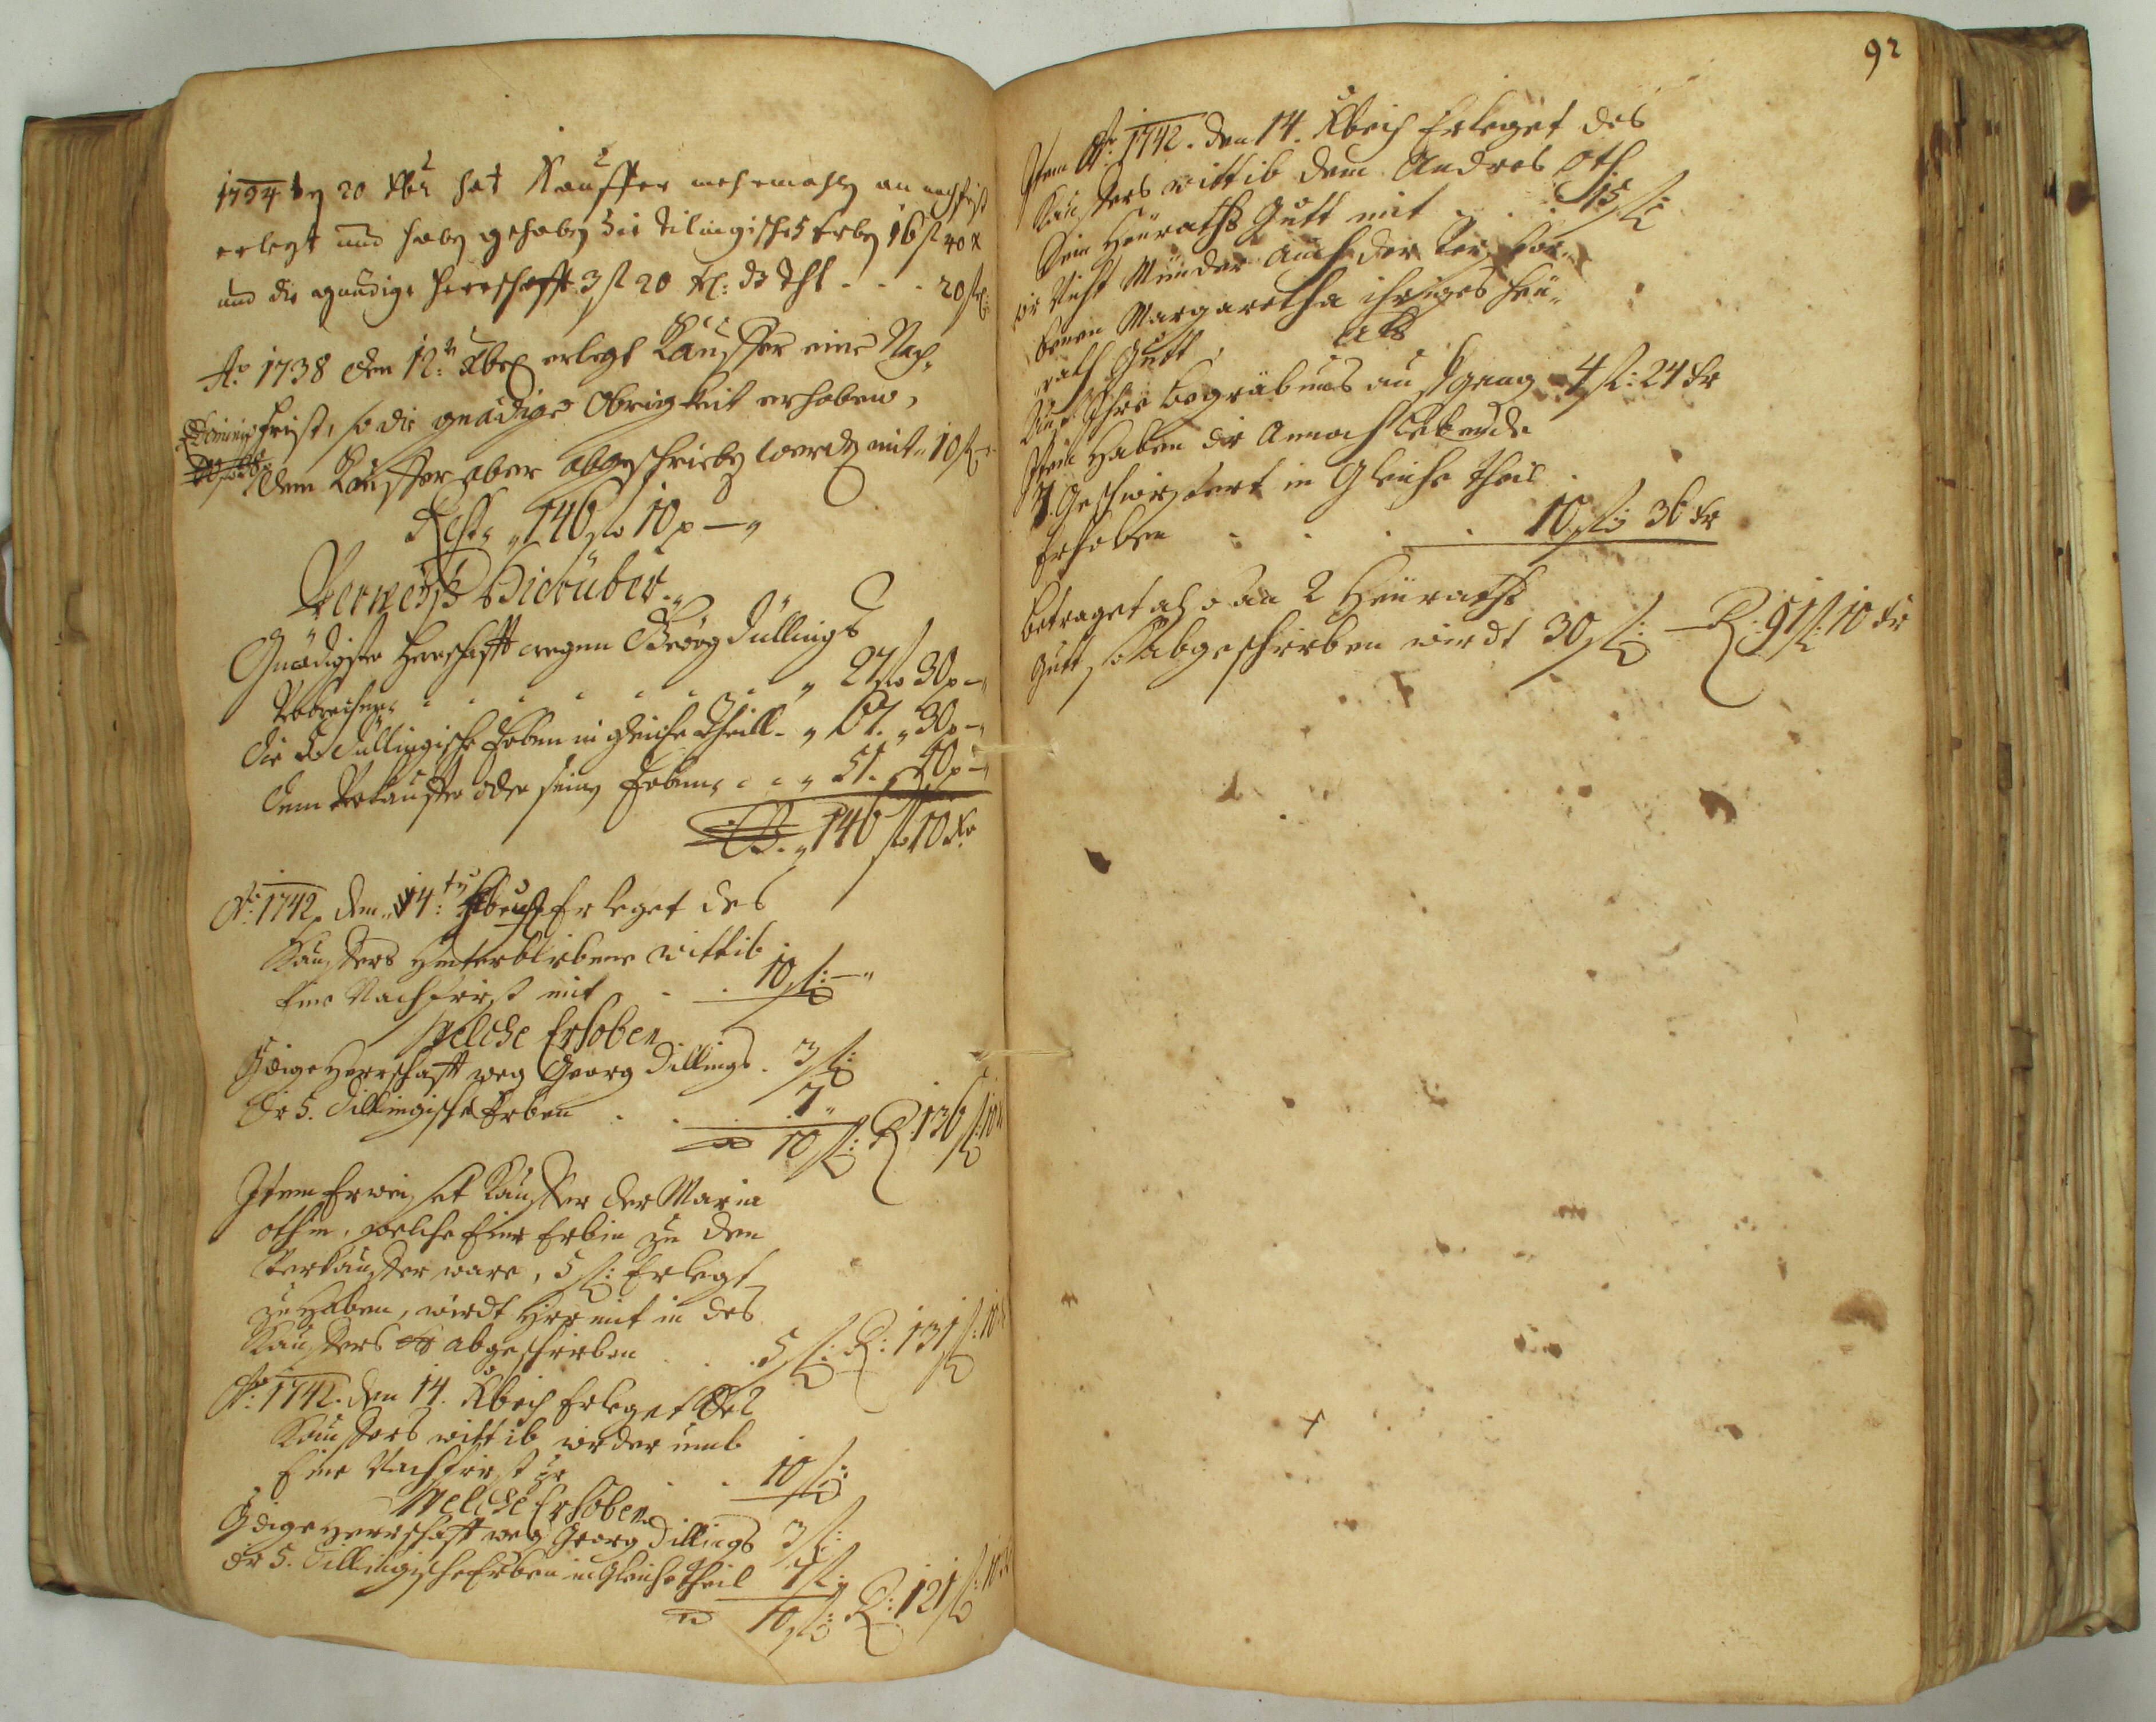 1734 dẽ 20 Xbr hat Kauffer mehemahlẽ an nachfrist
erlegt und habẽ gehobẽ die dilingische 5 Erbẽ 16 fl 40 x
und die gnädige Herrschafft 3 fl 20 xr: dß thl . . . 20 fl:
Aõ 1738 den 12: Xbr erlegt Kauffer eine Nach,
frist, so die gnädige Obrigkeit erhoben,
dem Kauffer aber abgeschriebẽ werdẽ mit 10 fl
Rest „ 146 fl 10 x —„
Verweiß Hierüber
Gnädigste Herrschafft wegen Georg düllings
27 fl 30 x —„
die 5 düllingische Erben in gleiche Theill „ 67. „ 30 x —„
dem Verkauffer oder seinẽ Erben „ 51. 10 x —„
146 fl 10 xr
Aõ: 1742. den 14: tẽ Xbris Erleget des
Kauffers Hinterblibene wittib
Eine Nachfrist mit . . 10 fl: —„
Welche Erhoben
Gdige Herrschafft weg Georg dillings . 3 fl:
die 5. dillingische Erben . . 7 „
10 fl: R: 136 fl: 10 x
Item Erweiset Kauffer der Maria
othin, welche Eine Erbin zu dem
Verkauffer ware, 5 fl: Erlegt
zu Haben, wirdt Hiermit in des
Kauffers abgeschrieben . . . 5 fl: R: 131 fl: 10 x
Aõ: 1742. den 14. Xbris Erleget des
Kauffers wittib wider umb
Eine Nachfrist zu . . 10 fl:
Welche Erhoben
Gdige Herrschafft weg Georg dillings 3 fl:
die 5. dillingische Erben in Gleiche Theil 7 fl:
10 fl: R: 121 fl: 10 x
92
Item Aõ: 1742. den 14. Xbris Erleget des
Kauffers wittib dem Andres Oth
Sein Heüraths Gutt mit . . . 15 fl:
wie Nicht Münder auch der verstor„
benen Margaretha ihriges Heü„
rath Gutt, als
Auf Ihre begräbnus aufgang 4 fl: 24 kr
Item Haben die Annoch Lebende
7. Geschwistert in Gleiche Theil
Erhoben . . . . 10 fl: 36 kr
betraget also an 2 Heüraths
Gutt, so Abgeschrieben wirdt 30 fl: — R: 91 fl: 10 kr